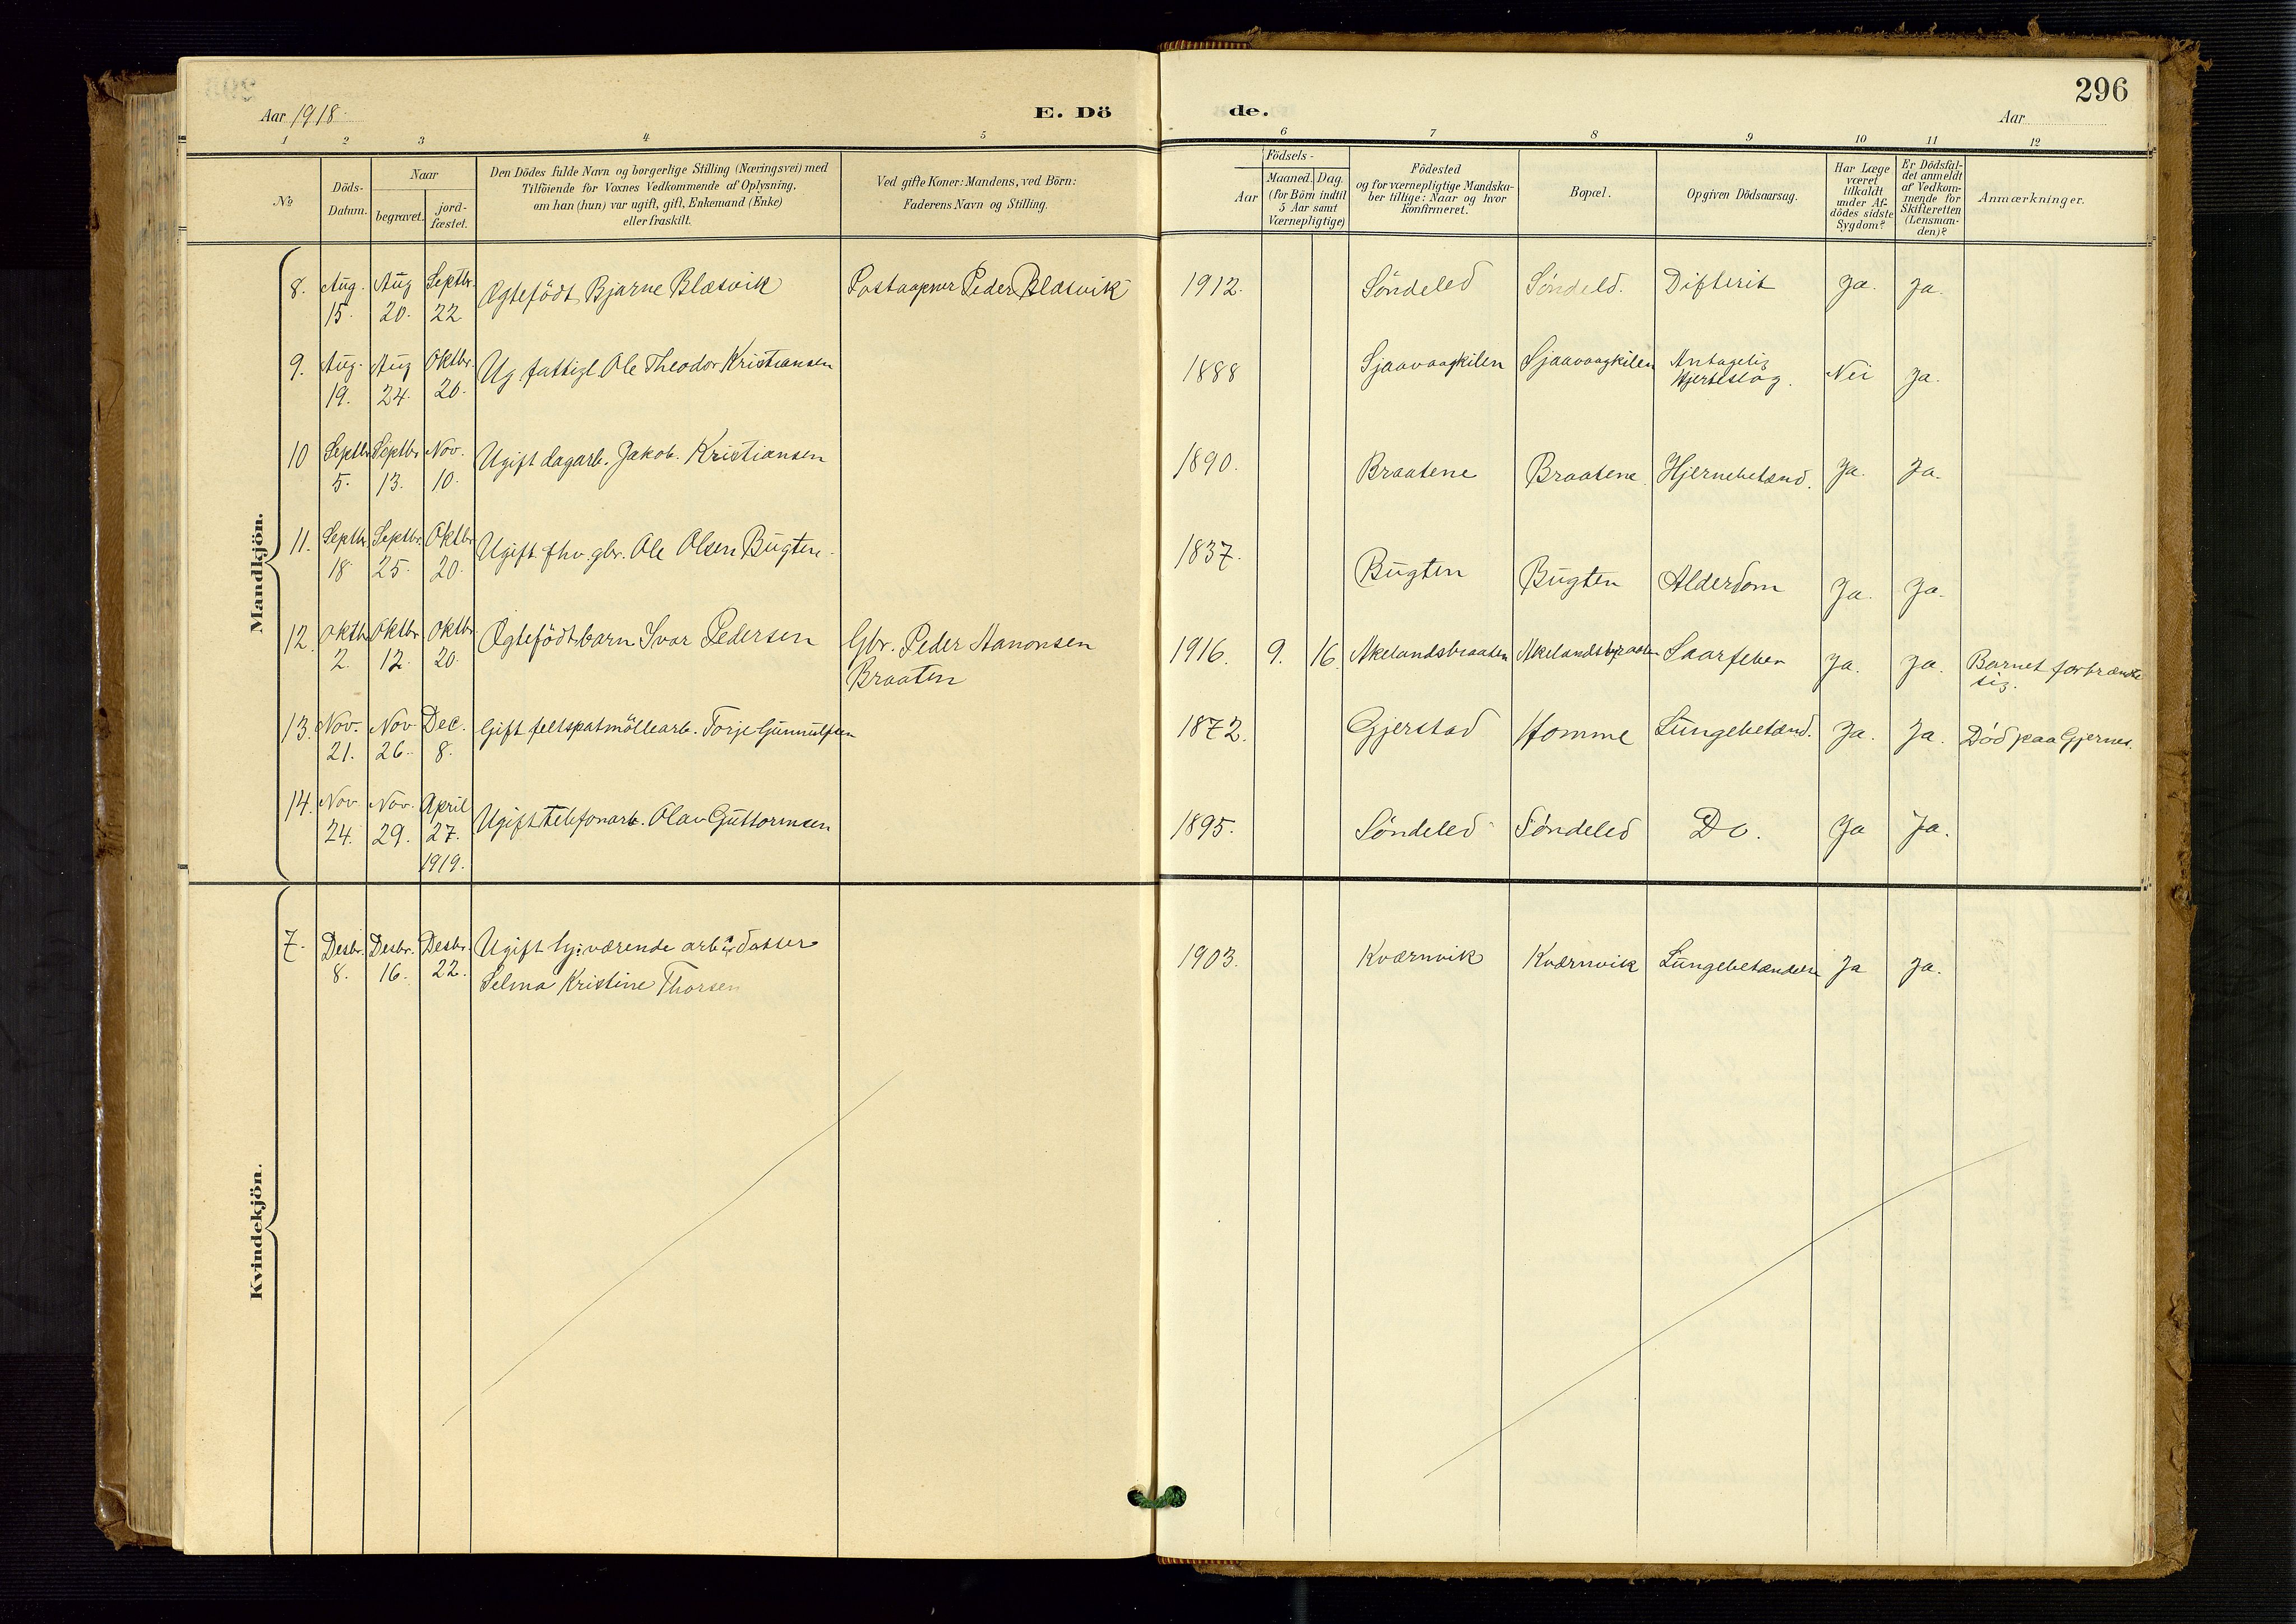 296
Aar 1918.
E. Dö
de.
Aar
1 2 3 4 5 6 7 8 9 10 11 12
№
Döds-
Datum.
Naar
begravet.
jord-
fæstet.
Den Dödes fulde Navn og borgerlige Stilling (Næringsvei) med
Tilföiende for Voxnes Vedkommende af Oplysning,
om han (hun) var ugift, gift, Enkemand (Enke)
eller fraskilt.
Ved gifte Koner: Mandens, ved Börn:
Faderens Navn og Stilling.
Födsels-
Aar
Maaned. Dag.
(for Börn indtil
5 Aar samt
Værnepligtige)
Födested
og for værnepligtige Mandska-
ber tillige: Naar og hvor
konfirmeret.
Bopæl.
Opgiven Dödsaarsag.
Har Læge
været
tilkaldt
under Af-
dödes sidste
Sygdom?
Er Dödsfal-
det anmeldt
af Vedkom-
mende for
Skifteretten
(Lensman-
den)?
Anmærkninger.
Mandkjön.
8. Aug. Aug Septbr. Ægtefödt Bjarne Blæsvik Postaapner Peder Blæsvik 1912. Söndeled Söndeld. Difterit Ja. Ja.
15. 20. 22
9. Aug. Aug Oktbr. Ug. fattigl. Ole Theodor Kristiansen 1888 Sjaavaagkilen Sjaavaagkilen Antagelig Nei Ja.
19. 24. 20. Hjerteslag.
10 Septbr Septbr Nov. Ugift dagarb. Jakob Kristiansen 1890. Braatene Braatene Hjernebetænd. Ja. Ja.
5. 13. 10.
11. Septbr. Septbr. Oktbr Ugift fhv. gbr. Ole Olsen Bugten. 1837. Bugten Bugten Alderdom Ja. Ja.
18 25. 20.
12. Oktbr Oktbr. Oktbr. Ægtefödt barn Ivar Pedersen Gbr. Peder Hanonsen 1916. 9. 16. Akelandsbraaten Akelandsbraaten Saarfeber Ja. Ja. Barnet forbrændte
2. 12. 20. Braaten sig.
13. Nov. Nov Dec. Gift feltspatmöllearb. Torje Gunnulfsen 1872. Gjerstad Homme Lungebetænd. Ja. Ja. Död paa Gjernes.
21. 26. 8.
14. Nov. Nov. April Ugift telefonarb. Olav Guttormsen 1895. Söndeled Söndeled Do. Ja Ja.
24. 29. 27.
1919.
Kvindekjön.
7. Desbr. Desbr. Desbr. Ugift hj:værende arb: datter 1903. Kværnvik Kværnvik Lungebetændelse Ja Ja.
8. 16. 22. Selma Kristine Thorsen